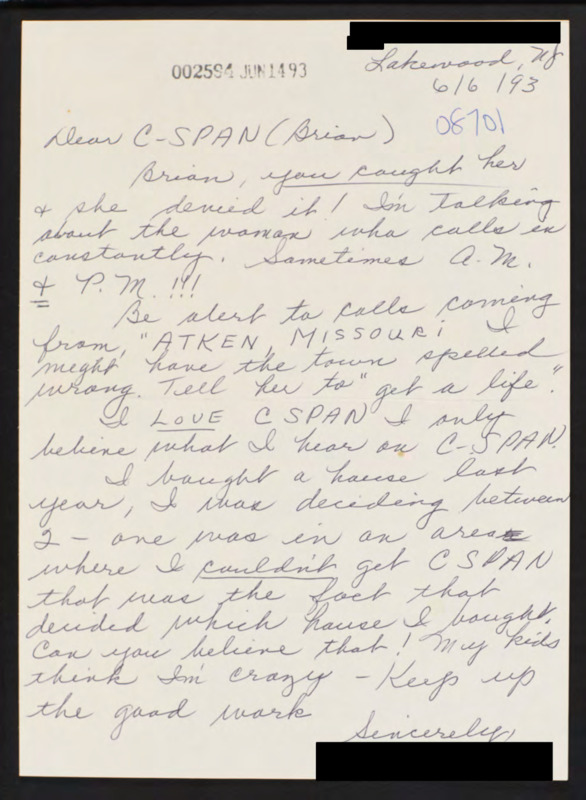 002594 JUN 14 93
Lakewood, NJ
6/6/93
08701
Dear C-SPAN (Brian)
Brian, you caught her
& she denied it! I'm talking
about the woman who calls in
constantly. Sometimes A.M.
& P.M. !!!
Be alert to calls coming
from, "ATKEN, MISSOURI I
might have the town spelled
wrong. Tell her to "get a life".
I LOVE C SPAN I only
believe what I hear on C-SPAN.
I bought a house last
year, I was deciding between
2 - one was in an area
where I couldn't get C SPAN
that was the fact that
decided which house I bought.
Can you believe that! My kids
think I'm crazy - Keep up
the good work
Sincerely,